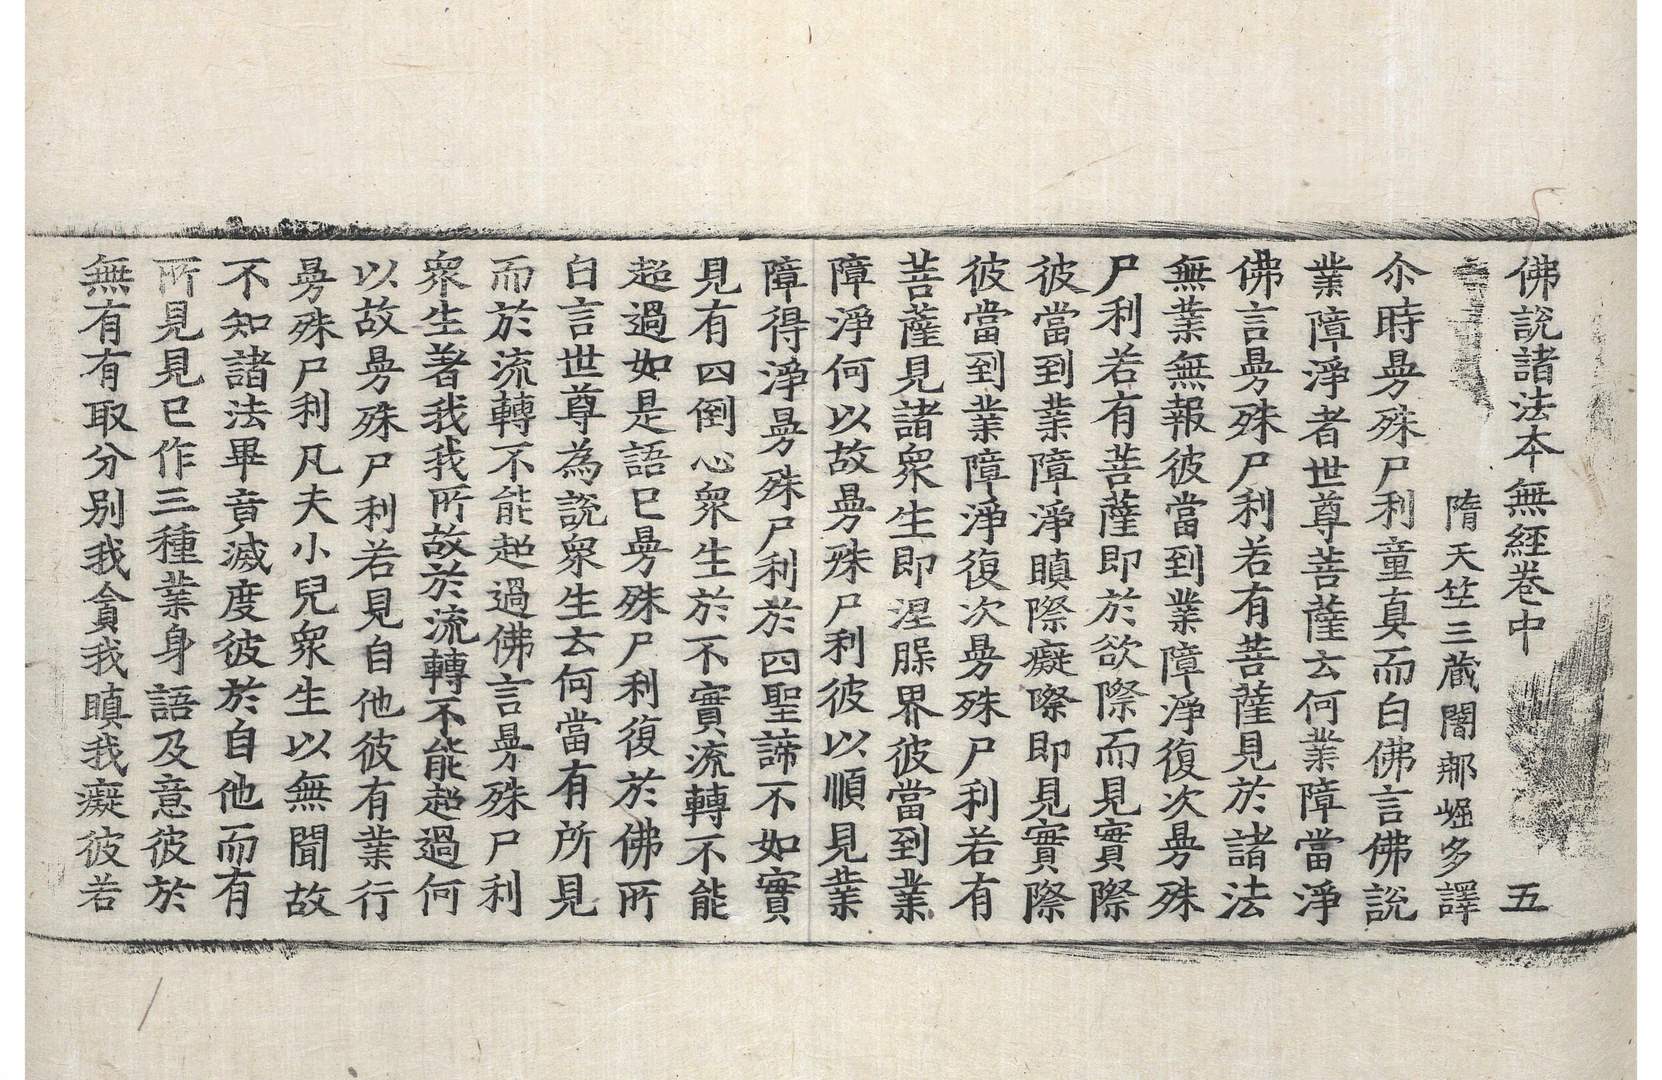 佛說諸法本無經卷中　五
隋天竺三藏闍那崛多譯
尒時㬅殊尸利童真而白佛言佛說
業障淨者世尊菩薩云何業障當淨
佛言㬅殊尸利若有菩薩見於諸法
無業無報彼當到業障淨復次㬅殊
尸利若有菩薩即於欲際而見實際
彼當到業障淨瞋際癡際即見實際
彼當到業障淨復次㬅殊尸利若有
菩薩見諸衆生即涅槃界彼當到業
障淨何以故㬅殊尸利彼以順見業
障得淨㬅殊尸利於四聖諦不如實
見有四倒心衆生於不實流轉不能
超過如是語已㬅殊尸利復於佛所
白言世尊為說衆生云何當有所見
而於流轉不能超過佛言㬅殊尸利
衆生著我我所故於流轉不能超過何
以故㬅殊尸利若見自他彼有業行
㬅殊尸利凡夫小兒衆生以無聞故
不知諸法畢竟滅度彼於自他而有
所見見已作三種業身語及意彼於
無有有取分別我貪我瞋我癡彼若